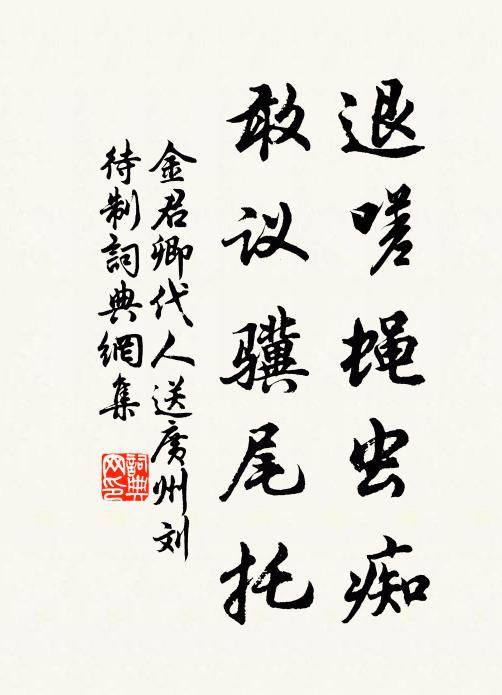 退嗟蝇虫痴
敢议骥尾托
金君卿代人送廣州刘
待制詞典網集
詞典网印